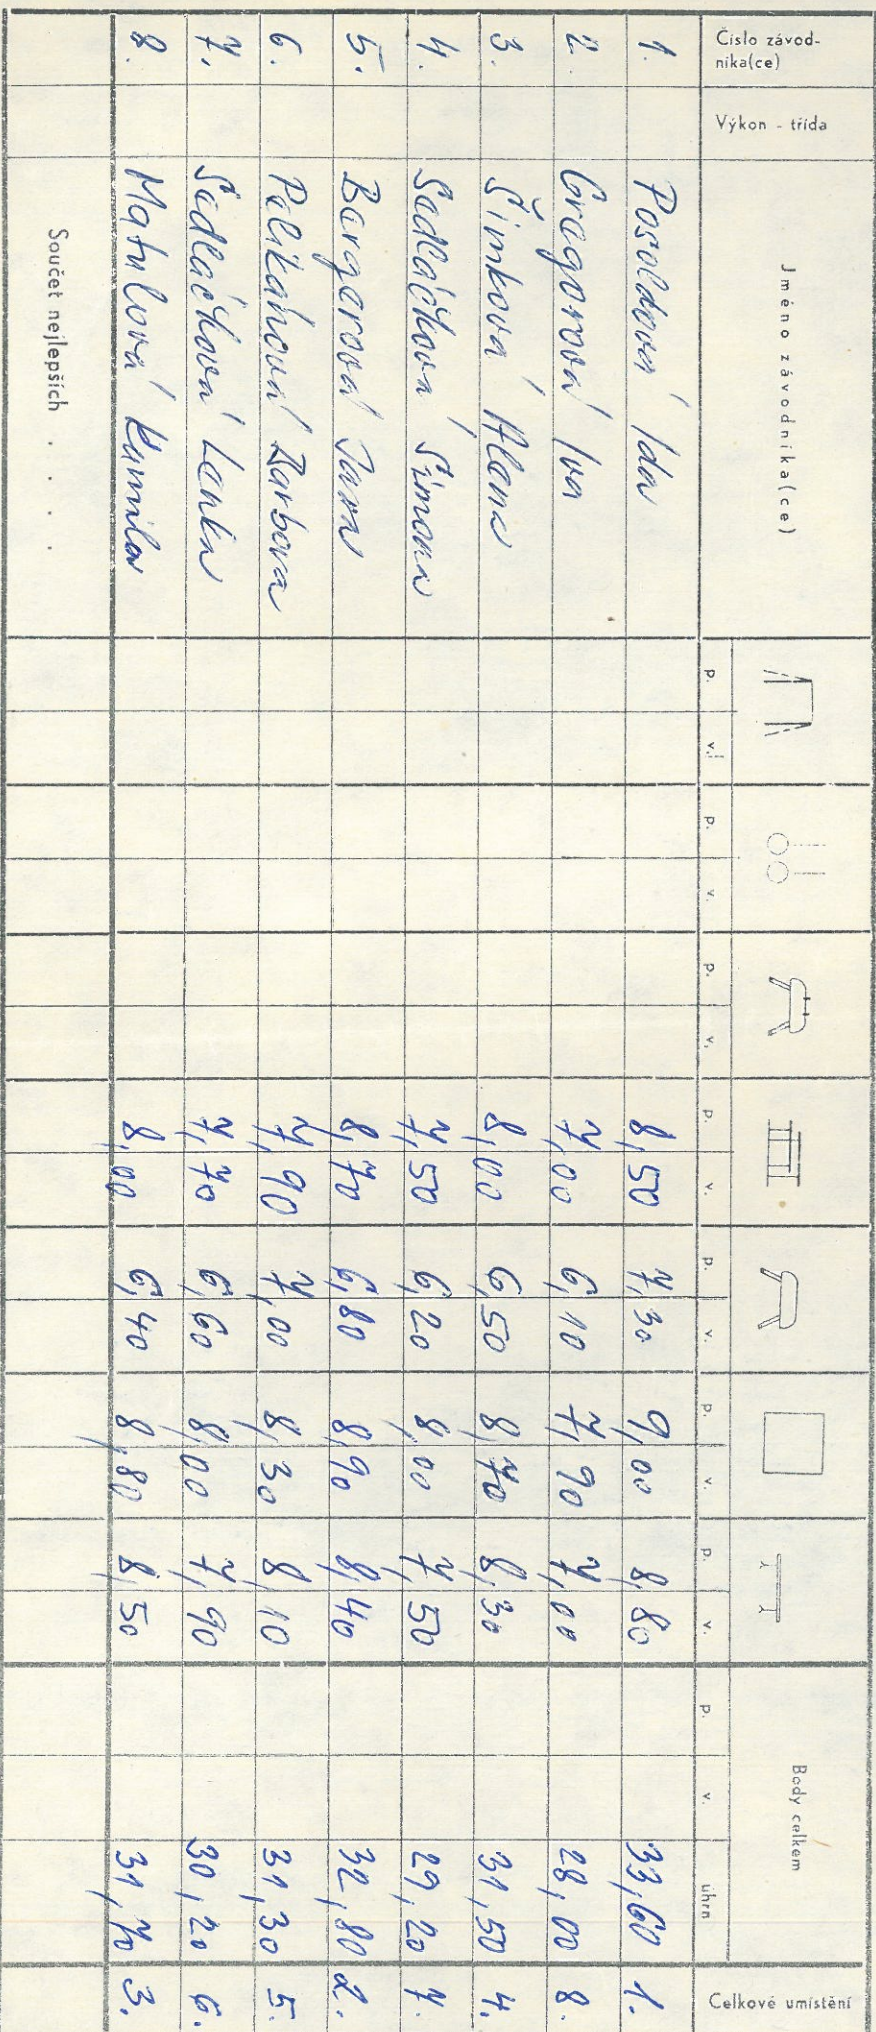 Číslo závod-
nika(ce)
Výkon - třída
Jméno závodníka(ce)
Body celkem
Celkové umístění
p. v. p. v. p. v. p. v. p. v. p. v. p. v. p. v. úhrn
1. Posoldová Ida 8,50 7,30 9,00 8,80 33,60 1.
2. Gregorová Iva 7,00 6,10 7,90 7,00 28,00 8.
3. Šimková Alena 8,00 6,50 8,70 8,30 31,50 4.
4. Sedláčková Simona 7,50 6,20 8,00 7,50 29,20 7.
5. Bergerová Jana 8,70 6,80 8,90 8,40 32,80 2.
6. Pelikánová Barbora 7,90 7,00 8,30 8,10 31,30 5.
7. Sedláčková Lenka 7,70 6,60 8,00 7,90 30,20 6.
8. Matulová Kamila 8,00 6,40 8,80 8,50 31,70 3.
Součet nejlepších . . .